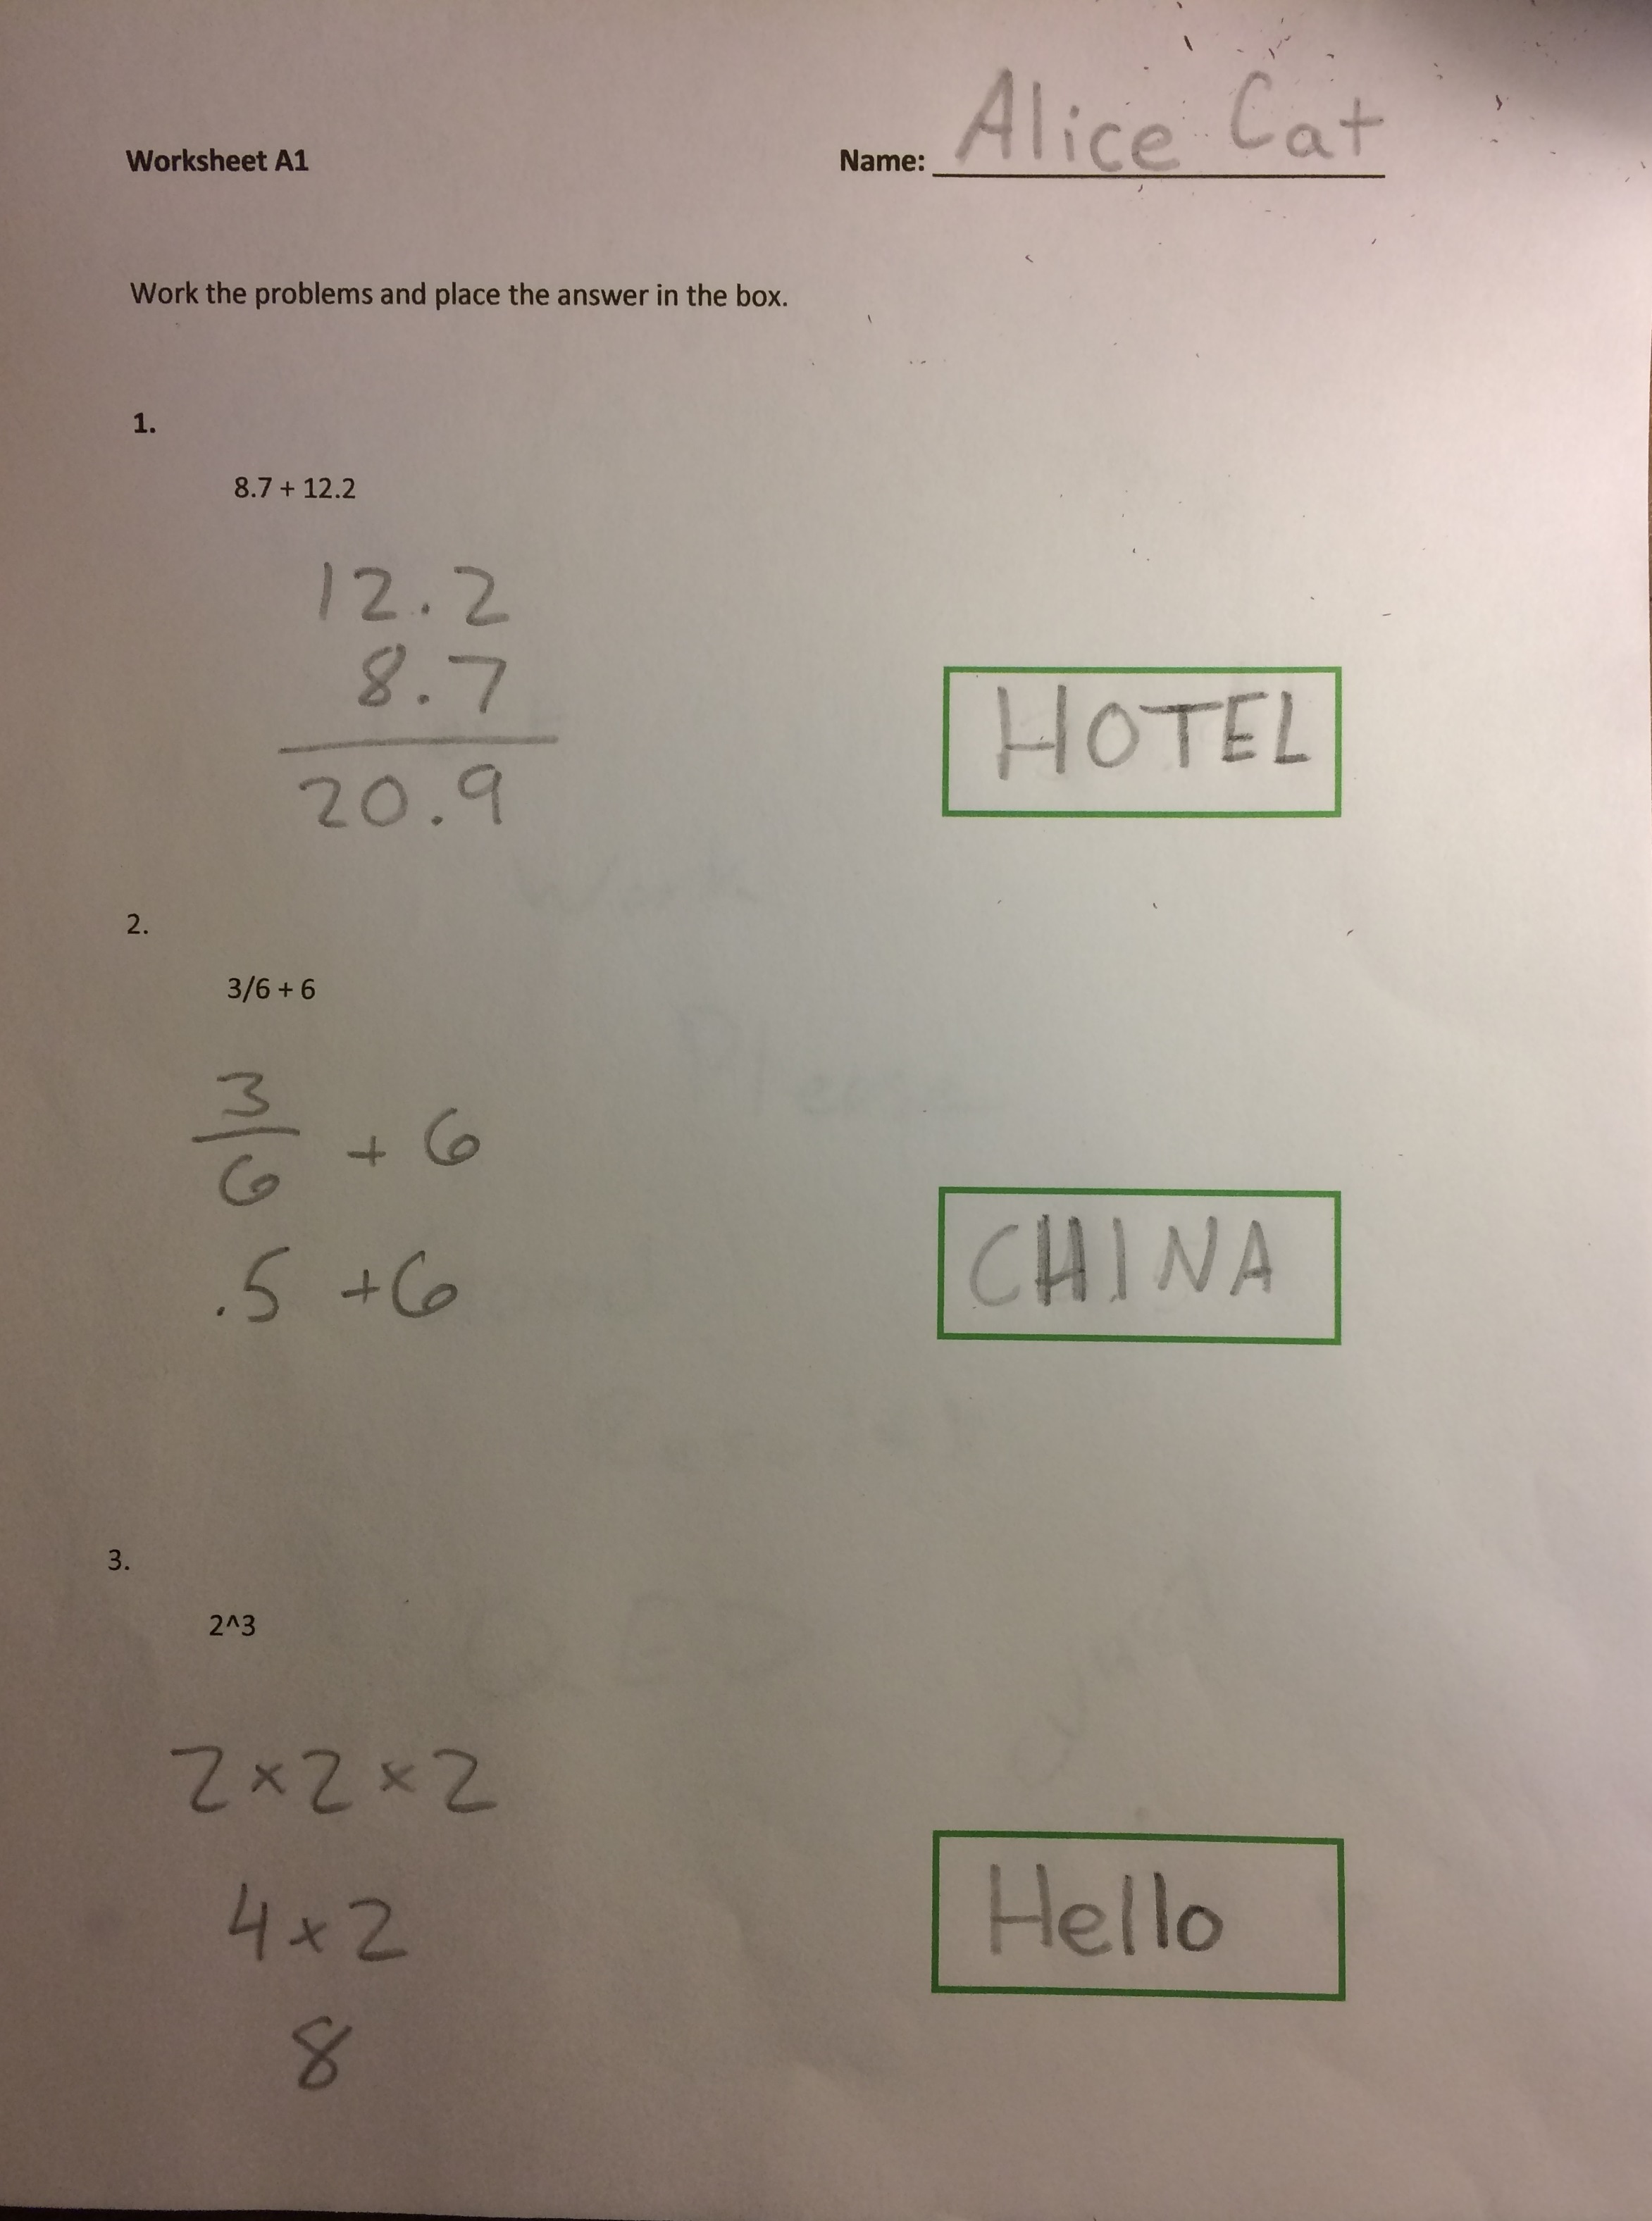 Worksheet A1 Name: Alice Cat
Work the problems and place the answer in the box.
1.
8.7 + 12.2
12.2
8.7
20.9
HOTEL
2.
3/6 + 6
3
6 + 6
.5 + 6
CHINA
3.
2^3
2 × 2 × 2
4 × 2
8
Hello